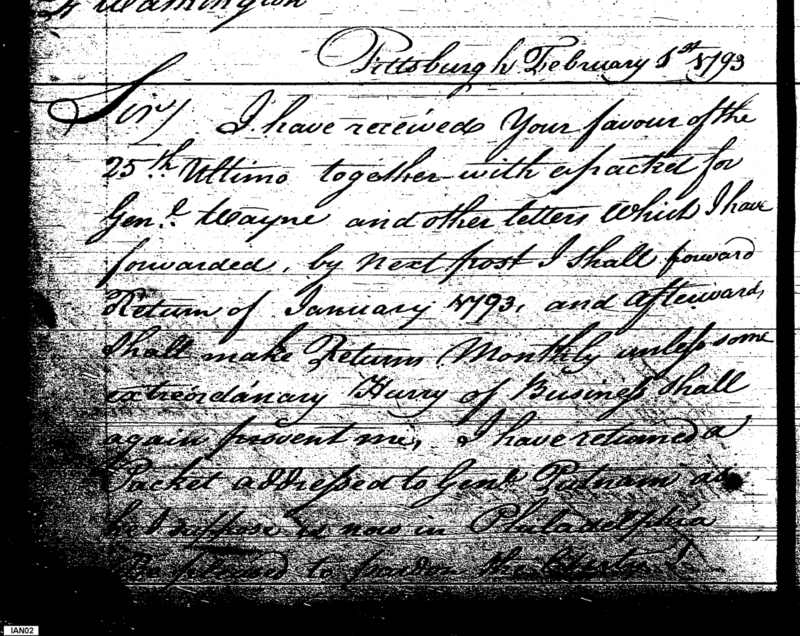 Ft Washington
Pittsburgh February 1st 1793
Sir, I have received Your favour of the
25th Ultimo together with a packet for
Genl. Wayne and other letters Which I have
forwarded, by next post I shall forward
Return of January 1793, and afterwards
shall make Returns Monthly unless some
extreordánary Hurry of Business shall
again prevent me, I have returned a
Packet addressed to Genl Putnam as
he I suppose is now in Philadelphia
Be pleased to pardon the
IAN02